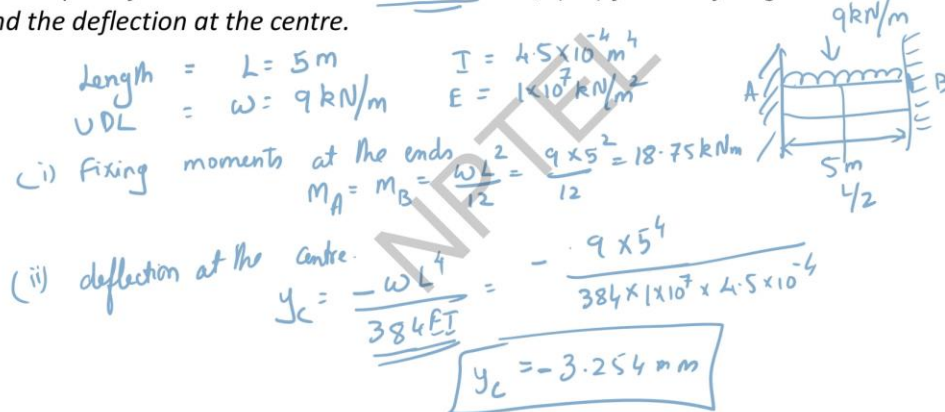 nd the deflection at the centre.
9kN/m
Length = L = 5m I = 4.5×10⁻⁴m⁴
UDL = ω = 9 kN/m E = 1×10⁷ kN/m²
A B
5m
L/2
(i) Fixing moments at the ends
M_A = M_B = ωL²/12 = 9×5²/12 = 18.75kNm
(ii) deflection at the centre.
y_c = -ωL⁴/384EI = - 9×5⁴/384×1×10⁷×4.5×10⁻⁴
y_c = -3.254 mm
NPTEL